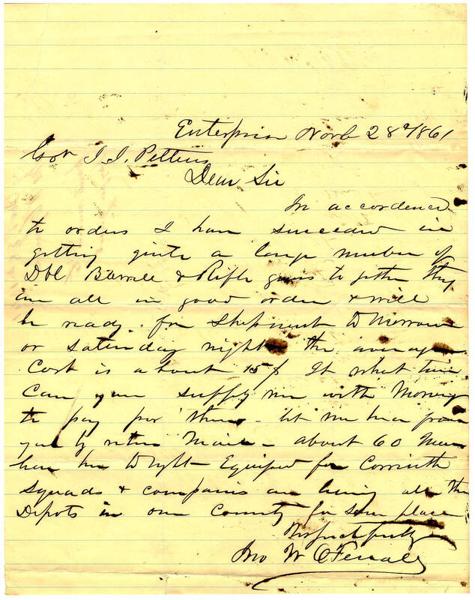 Enterprise Novb 28th 1861
Gov J. J. Pettus
Dear Sir
In accordence
to orders I have succeded in
getting quite a large number of
Dbl Barrell & Rifle guns to gether they
are all in good order & will
be ready for Shipment to Morrow
or Saturday night the average
Cost is about 15$ At what time
Can you supply me with Money
to pay for them let me hear from
you by return Mail - about 60 Men
here to night Equiped for Corinth
Squads & companies are leaving all the
Depots in our County for Same place
Respectfully
Jno W OFerrall